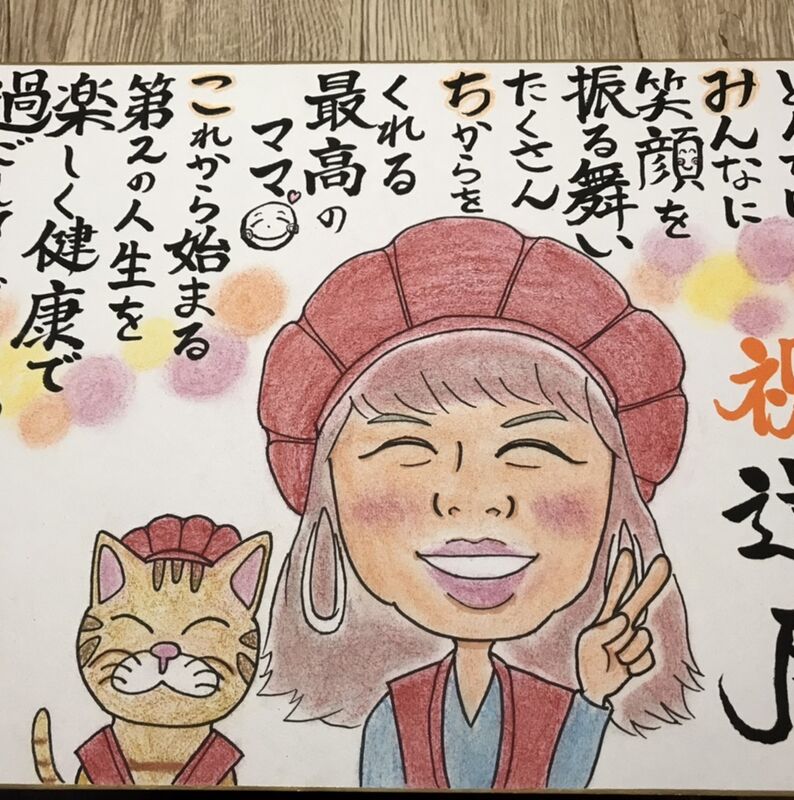 祝
みんなに
笑顔を
振る舞い
たくさん
ちからを
くれる
最高の
ママ
これから始まる
第2の人生を
楽しく健康で
過ごして